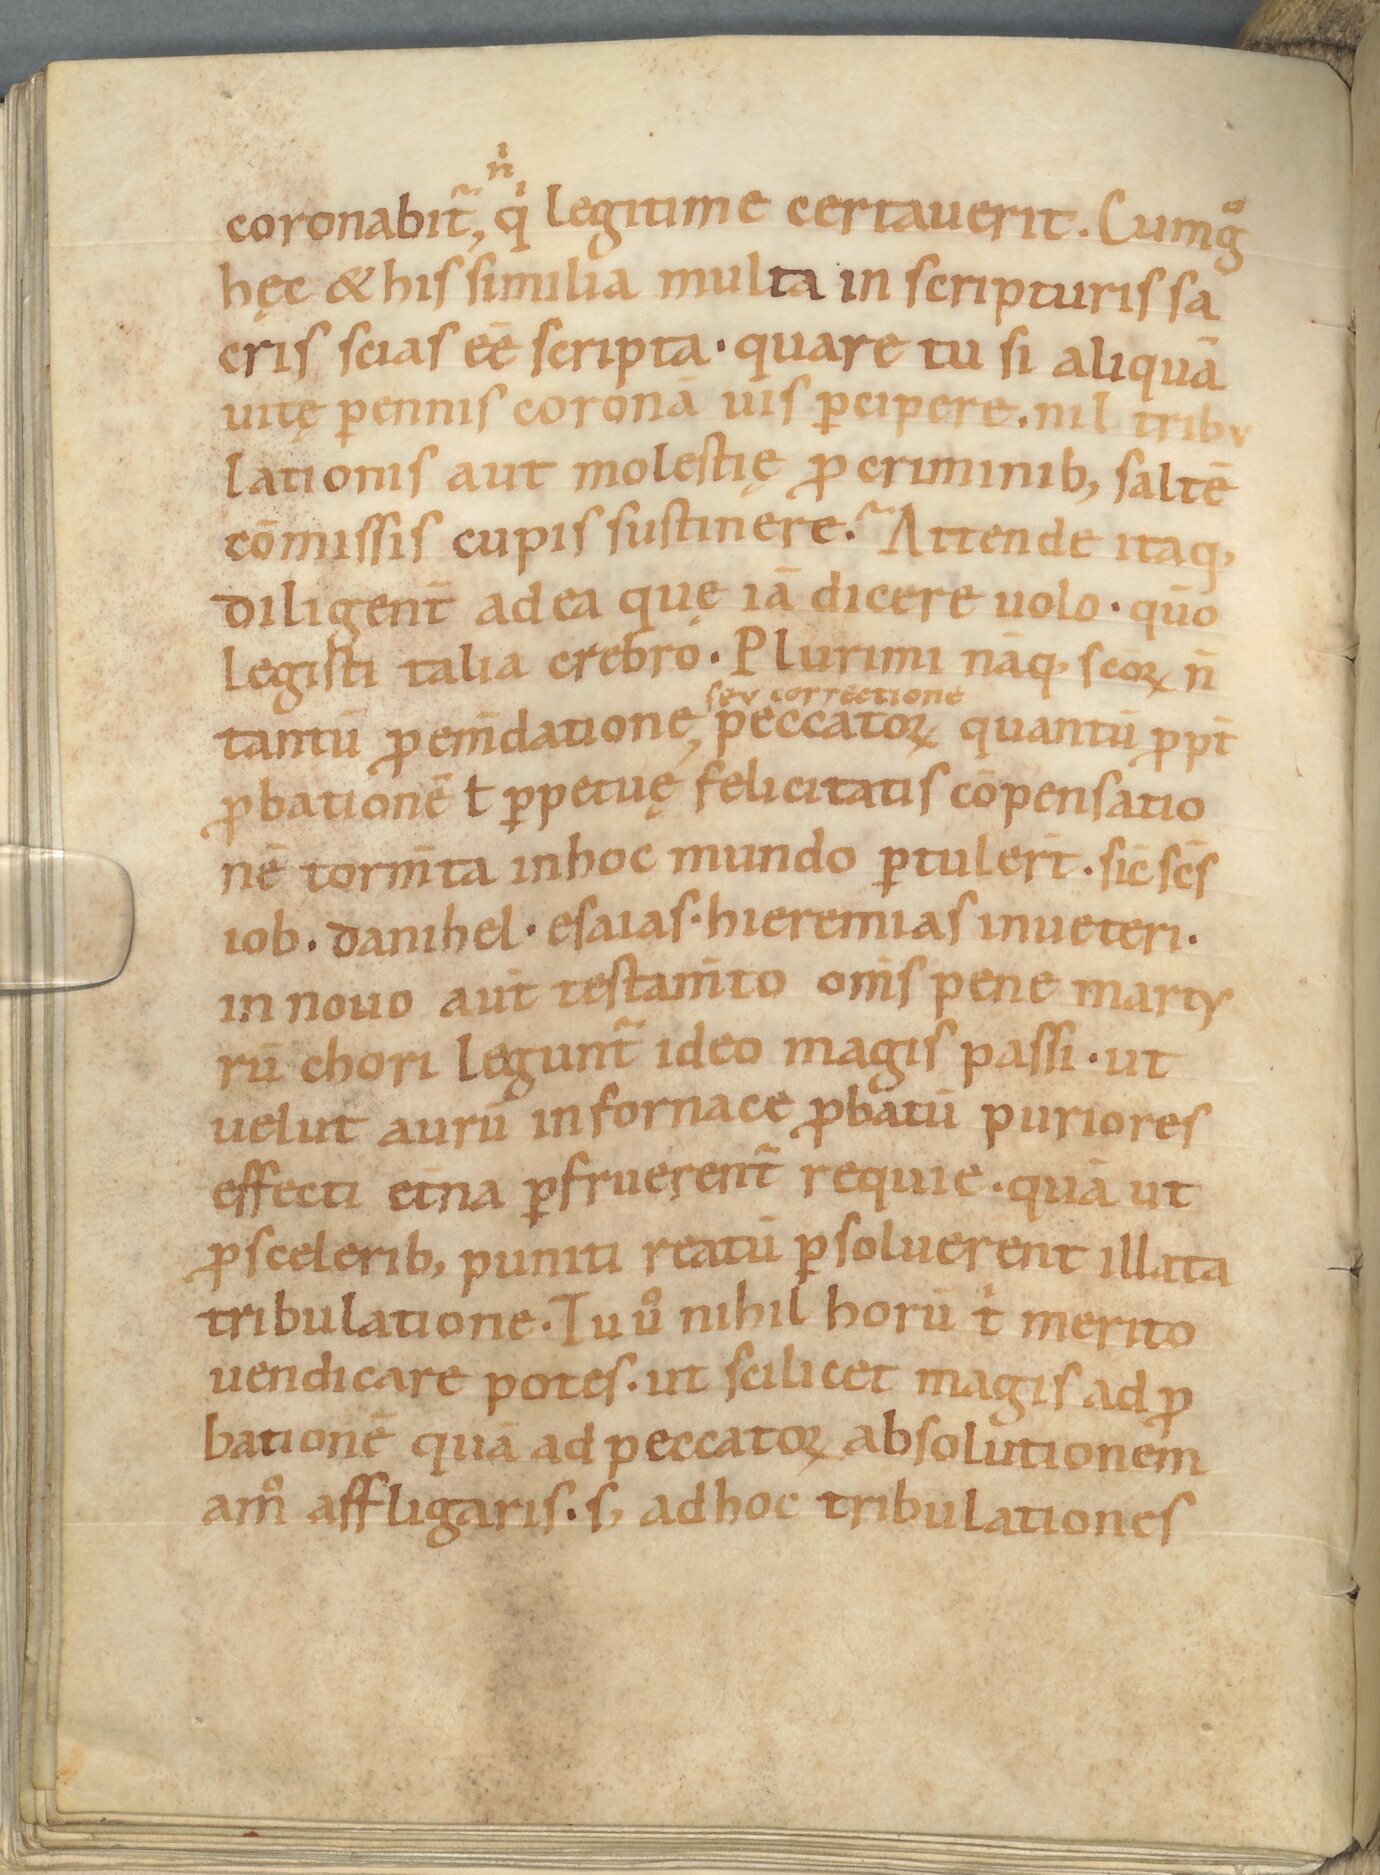 n̊
coronabit᷑, qi legitime certauerit. Cumg̊
hęc & his similia multa in scripturis sa
cris scias eē scripta · quare tu si aliquā
uitę ꝑennis coronā uis ꝑcipere. nil tribv
lationis aut molestię ꝓ criminib; saltē
cōmissis cupis sustinere.᷑ Attende itaq;
diligent̄ ad ea quę iā dicere uolo · qūo
legisti talia crebro. Plurimi nāq; scoꝝ n̄
seu correctione
tantū ꝓ em̄datione, peccatoꝝ quantū ꝓpt̄
ꝓbationē ł ꝑpetuę felicitatis cōpensatio
nē torm̄ta in hoc mundo ꝑtuler̄t. sic̄ sc̄s
iob. danihel · esaias · hieremias in ueteri.
in nouo aut̄ testam̄to om̄s pene marty
rū chori legunt᷑ ideo magis passi · ut
uelut aurū in fornace ꝓbatū puriores
effecti et̄na ꝑfruerent᷑ requie · quā ut
ꝓ scelerib; puniti reatū ꝑsoluerent illata
tribulatione. Tu uͦ nihil horū tⁱ merito
uendicare potes. ut scilicet magis ad ꝓ
bationē quā ad peccatoꝝ absolutionem
am̊ affligaris. s; ad hoc tribulationes